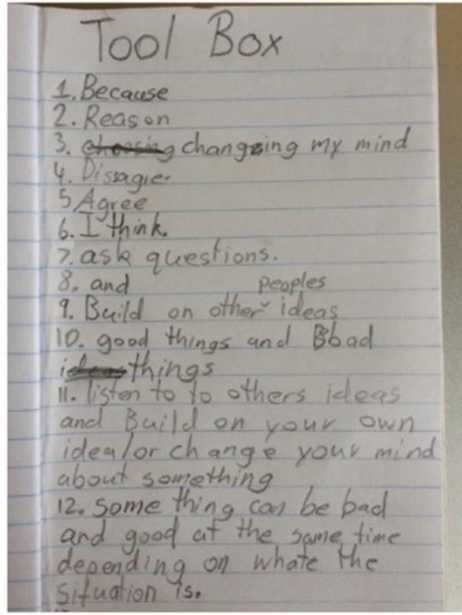 Tool Box
1. Because
2. Reason
3. changing my mind
4. Dissagie.
5 Agree
6. I think.
7. ask questions.
8. and
9. Build on other peoples ideas
10. good things and Bbad
things
11. listen to to others ideas
and Build on your own
idea/or change your mind
about something
12. some thing can be bad
and good at the same time
depending on whate the
situation is.